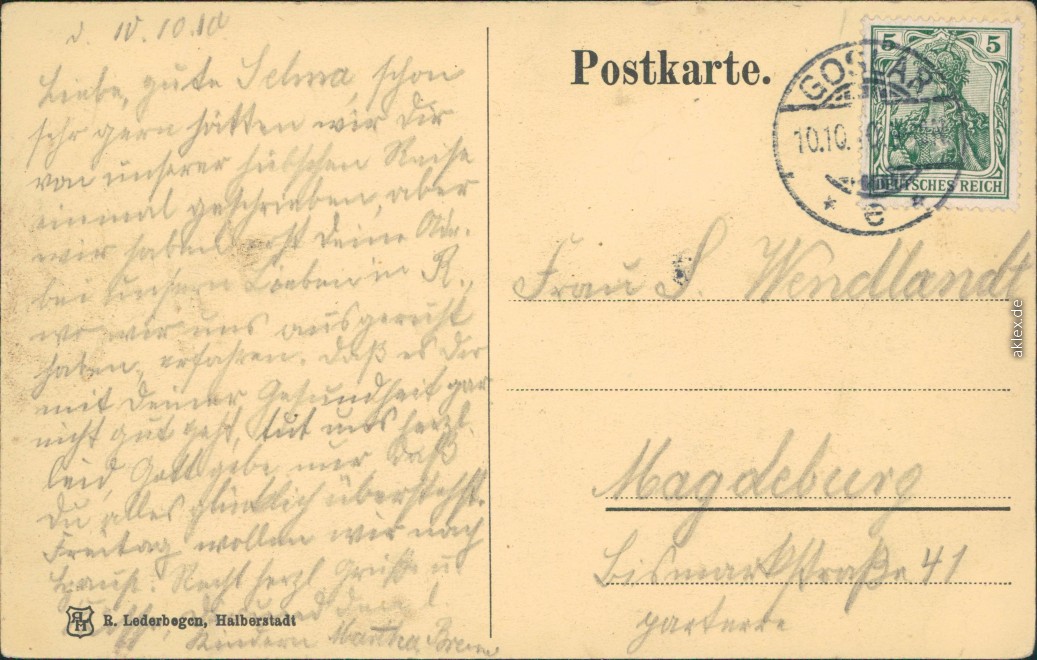 d. 10.10.10
Liebe, gute Selma, schon
sehr gern hätten wir Dir
von unserer hübschen Reise
einmal geschrieben, aber
wir haben erst Deine Adr.
bei unsern Lieben in R.,
wo wir uns ausgeruht
haben, erfahren. Daß es Dir
mit Deiner Gesundheit gar
nicht gut geht, tut uns herzl.
leid, Gott gebe nur daß
Du alles glücklich überstehst.
Freitag wollen wir nach
Recht herzl. Grüße u.
Kindern Martha
R. Lederbogen, Halberstadt
Postkarte.
5 5
DEUTSCHES REICH
GOSLAR
10.10.10
* e *
Frau S. Wendlandt
Magdeburg
Bismarkstraße 41
parterre
aklex.de